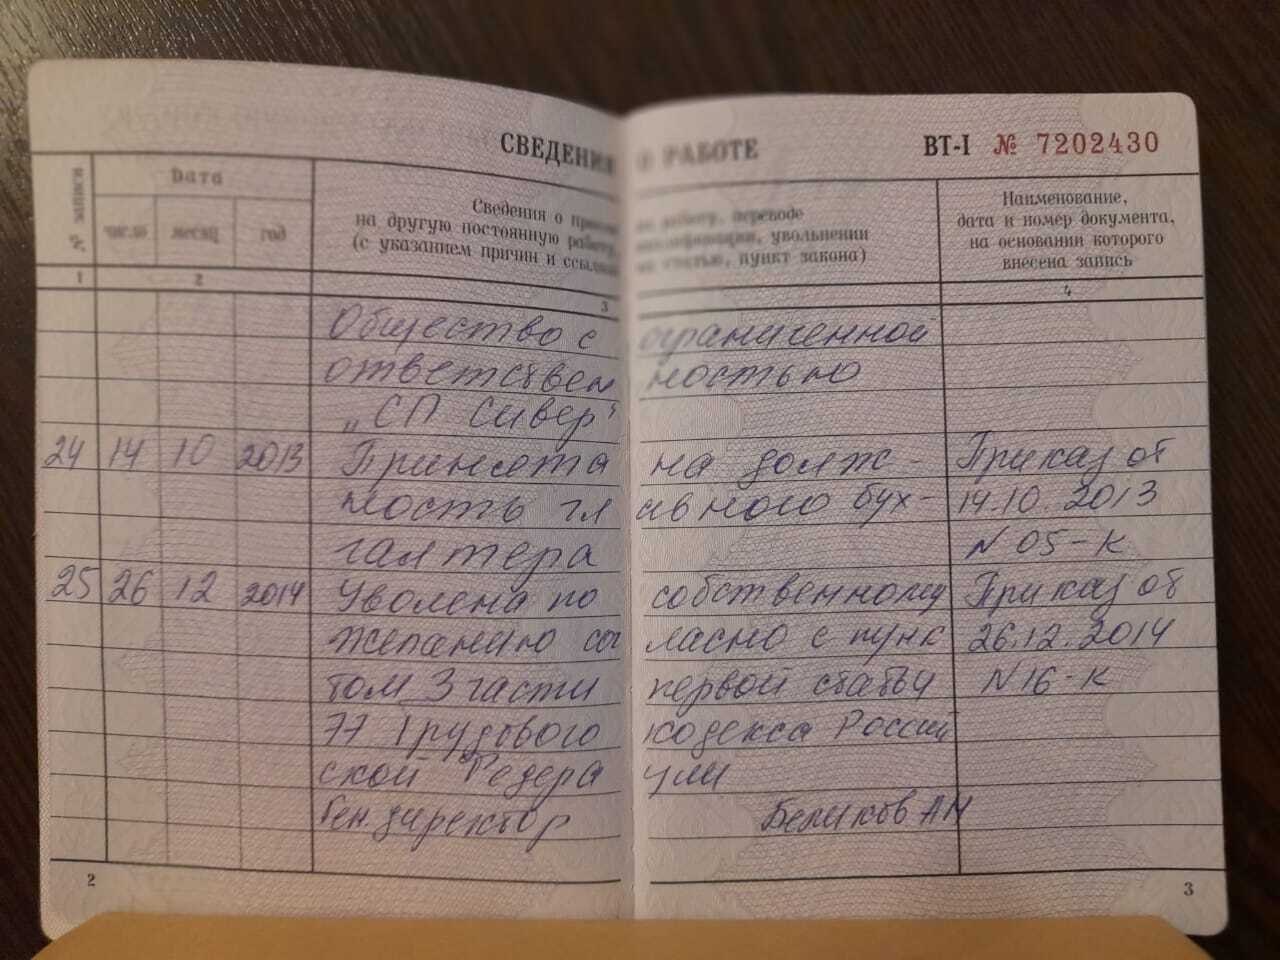 СВЕДЕНИЯ О РАБОТЕ ВТ-I № 7202430
№ записи Дата Сведения о приеме на работу, переводе Наименование,
число месяц год на другую постоянную работу, квалификации, увольнении дата и номер документа,
(с указанием причин и ссылкой на статью, пункт закона) на основании которого
внесена запись
1 2 3 4
Общество с ограниченной
ответственностью
„СП Сивер"
24 14 10 2013 Принята на долж- Приказ от
ность главного бух- 14.10.2013
галтера N 05-к
25 26 12 2014 Уволена по собственному Приказ от
желанию согласно с пунк 26.12.2014
том 3 части первой статьи N 16-к
77 Трудового кодекса Россий
ской Федерации
Ген.директор Беликов АН
2 3